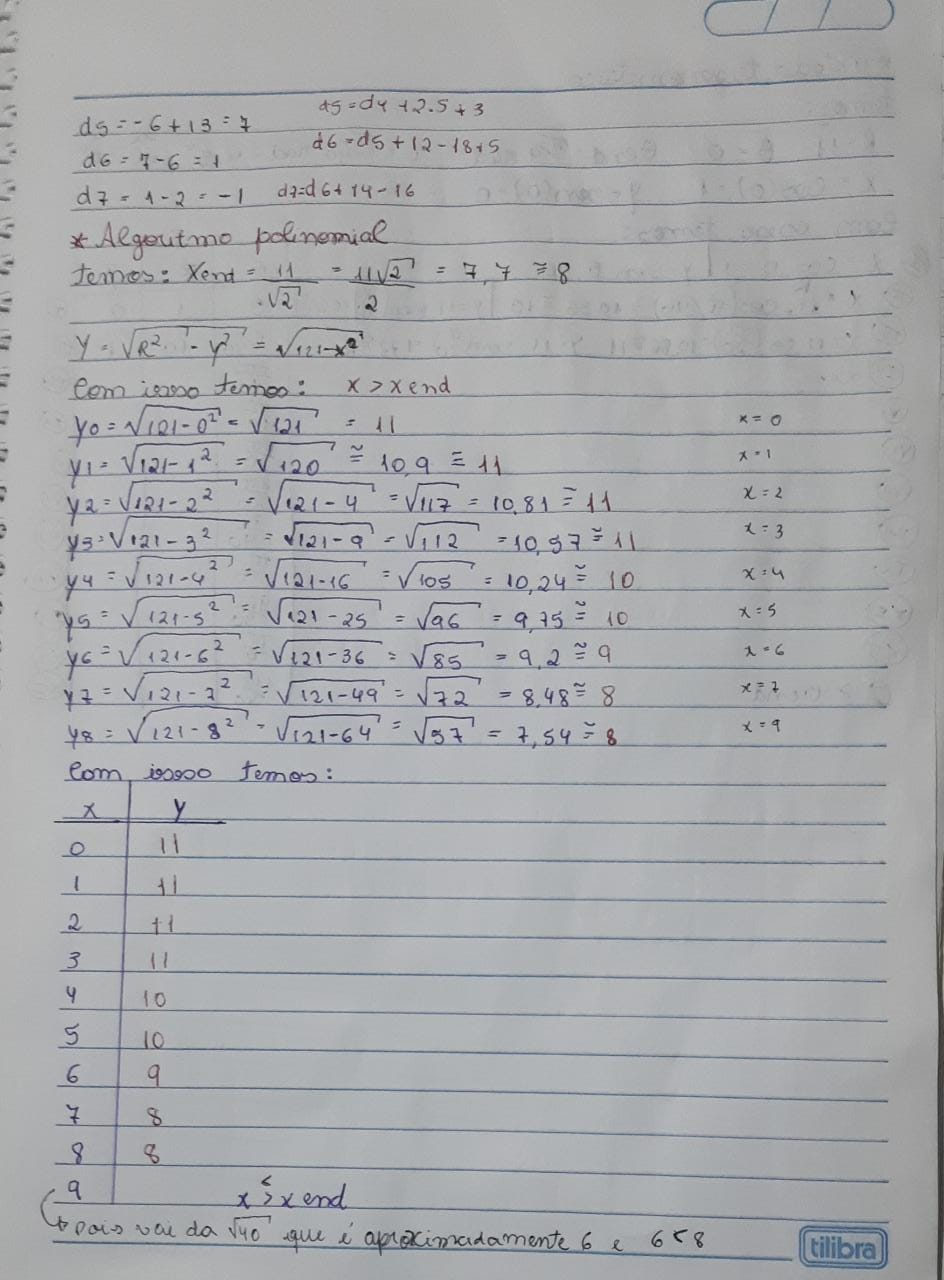 d5 = -6 + 13 = 7 d5 = d4 + 2.5 + 3
d6 = 7 - 6 = 1 d6 = d5 + 12 - 18 + 5
d7 = 1 - 2 = -1 d7 = d6 + 14 - 16
* Algoritmo polinomial
temos: Xend = 11/√2 = 11√2/2 = 7,7 ≅ 8
Y = √R² - Y² = √121-x²
Com isso temos: x > x end
y0 = √121-0² = √121 = 11 x = 0
y1 = √121-1² = √120 ≅ 10,9 ≅ 11 x = 1
y2 = √121-2² = √121-4 = √117 = 10,81 ≅ 11 x = 2
y3 = √121-3² = √121-9 = √112 = 10,57 ≅ 11 x = 3
y4 = √121-4² = √121-16 = √105 = 10,24 ≅ 10 x = 4
y5 = √121-5² = √121-25 = √96 = 9,75 ≅ 10 x = 5
y6 = √121-6² = √121-36 = √85 = 9,2 ≅ 9 x = 6
y7 = √121-7² = √121-49 = √72 = 8,48 ≅ 8 x = 7
y8 = √121-8² = √121-64 = √57 = 7,54 ≅ 8 x = 9
Com isso temos:
x y
0 11
1 11
2 11
3 11
4 10
5 10
6 9
7 8
8 8
9 x > x end
<
↳ pois vai da √40 que é aproximadamente 6 e 6 < 8
tilibra